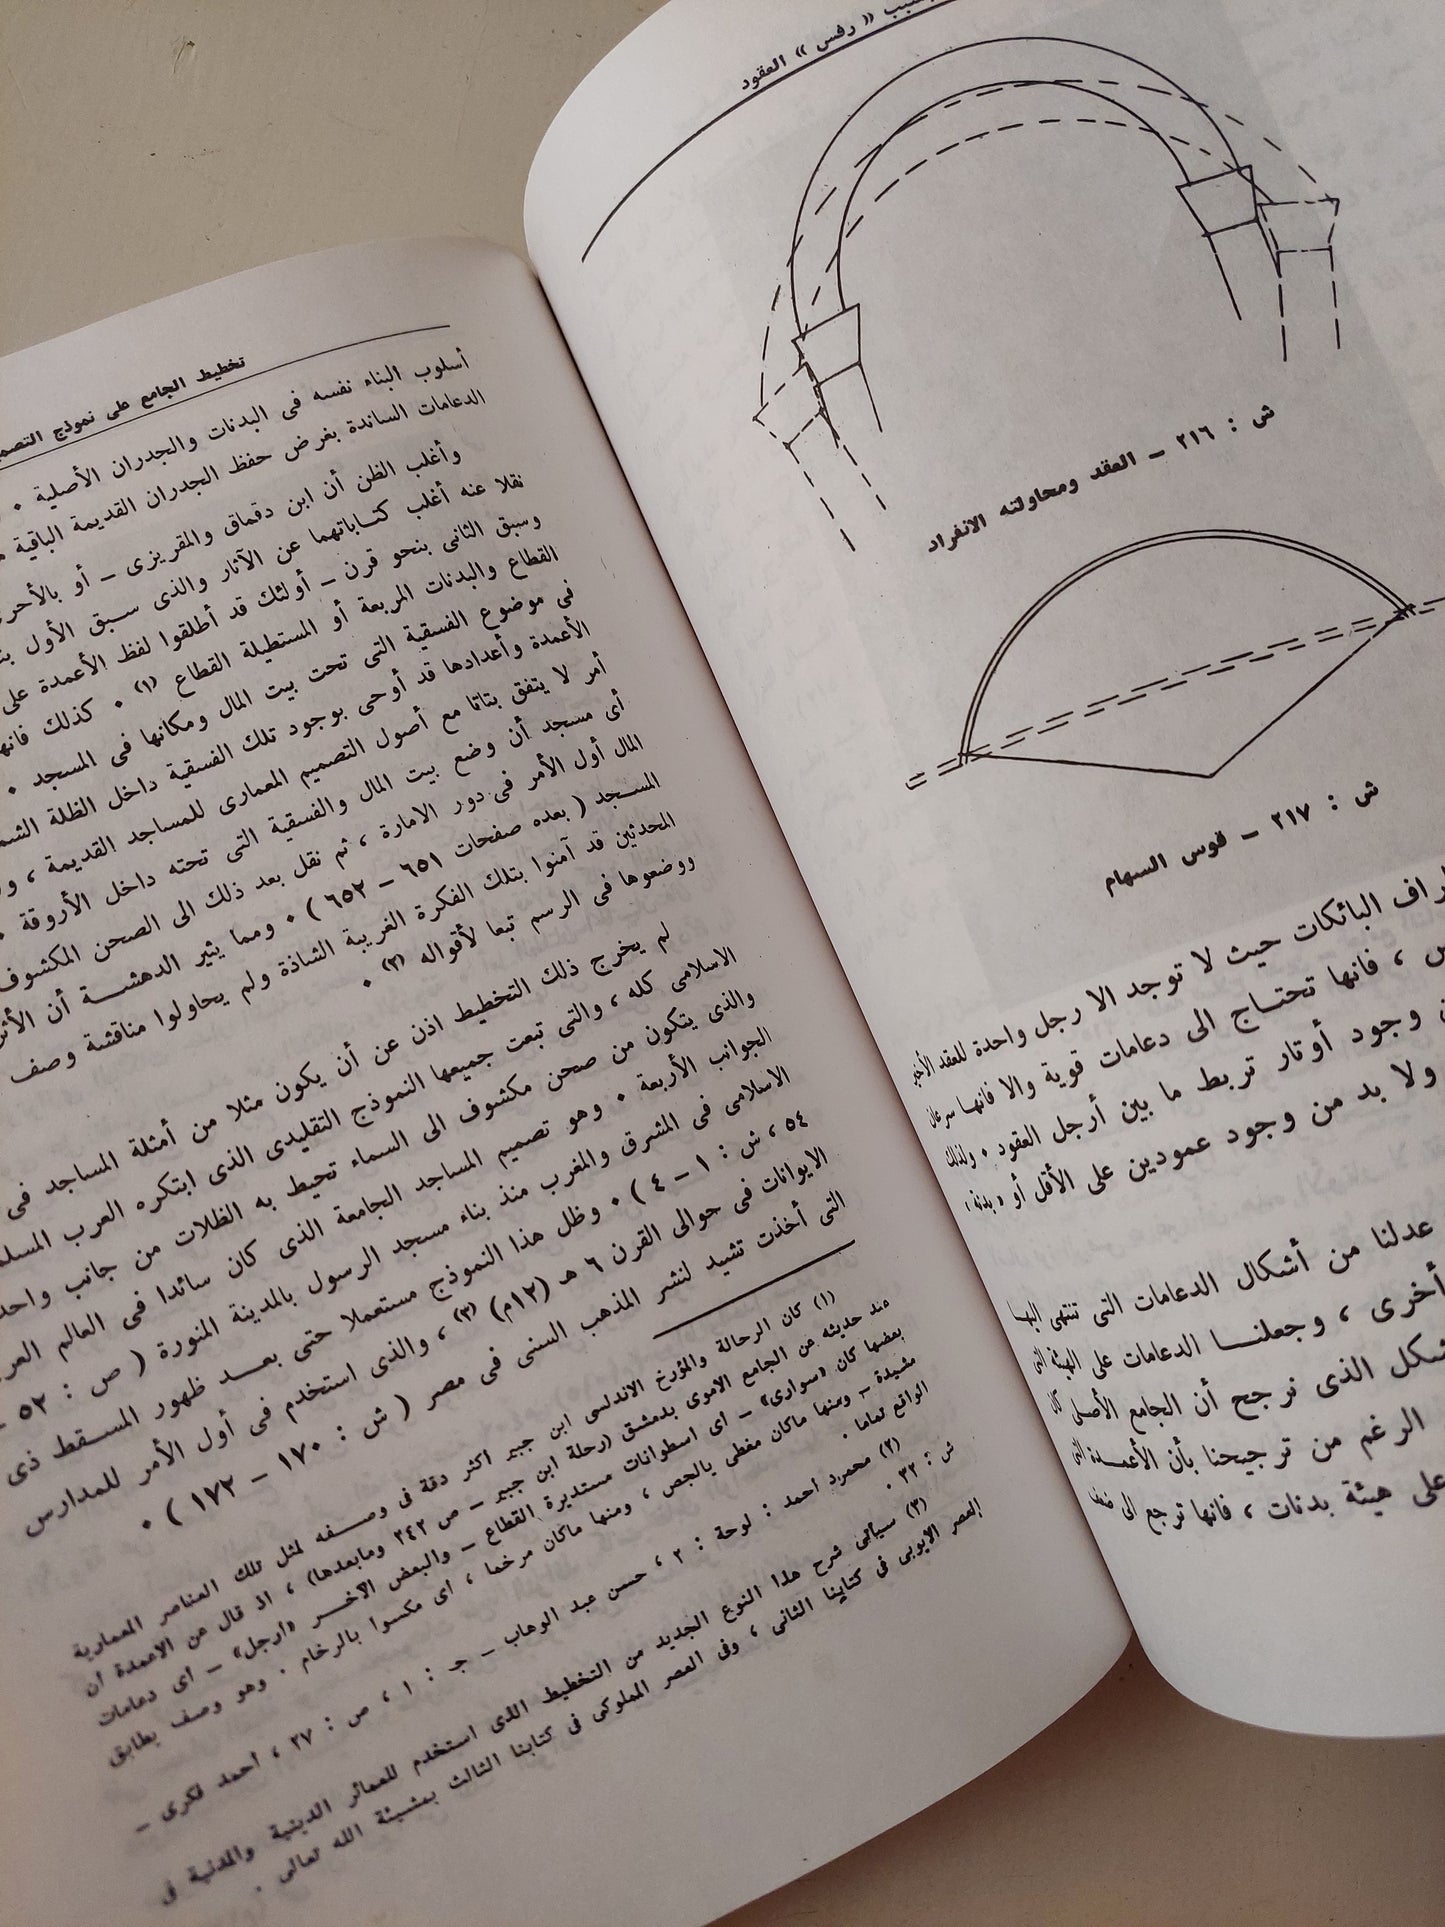 « رفس » العقود
ش : ٢١٦ ــ العقد ومحاولته الانفراد
ش : ٢١٧ ــ قوس السهام
البائكات حيث لا توجد الا رجل واحدة للعقد الأخير
، فانها تحتاج الى دعامات قوية والا فانها سرعان
وجود أوتار تربط ما بين أرجل العقود ٠ ولذلك
ولا بد من وجود عمودين على الأقل أو « بدنة »
عدلنا من أشكال الدعامات التى تنتهى اليها
أخرى ، وجعلنا الدعامات على الهيئة التى
الذى نرجح أن الجامع الأصلى كان
الرغم من ترجيحنا بأن الأعمدة التى
على هيئة بدنات ، فانها ترجع الى ضعف
تخطيط الجامع على نموذج
أسلوب البناء نفسه فى البدنات والجدران الأصلية ٠
الدعامات الساندة بغرض حفظ الجدران القديمة الباقية
وأغلب الظن أن ابن دقماق والمقريزى ــ أو
نقلا عنه أغلب كتاباتهما عن الآثار والذى سبق الأول
وسبق الثانى بنحو قرن ــ أولئك قد أطلقوا لفظ الأعمدة على
القطاع والبدنات المربعة أو المستطيلة القطاع (١) ٠ كذلك
فى موضوع الفسقية التى تحت بيت المال ومكانها فى المسجد ٠
الأعمدة وأعدادها قد أوحى بوجود تلك الفسقية داخل الظلة
أمر لا يتفق بتاتا مع أصول التصميم المعمارى للمساجد القديمة ،
أى مسجد أن وضع بيت المال والفسقية التى تحته داخل الأروقة ٠
المال أول الأمر فى دور الامارة ، ثم نقل بعد ذلك الى الصحن المكشوف
المسجد ( بعده صفحات ٦٥١ ــ ٦٥٢ ) ٠ ومما يثير الدهشة أن
المحدثين قد آمنوا بتلك الفكرة الغريبة الشاذة ولم يحاولوا مناقشة وصف
ووضعوها فى الرسم تبعا لأقواله (٢) ٠
لم يخرج ذلك التخطيط اذن عن أن يكون مثلا من أمثلة المساجد فى
الاسلامى كله ، والتى تبعت جميعها النموذج التقليدى الذى ابتكره العرب
والذى يتكون من صحن مكشوف الى السماء تحيط به الظلات من جانب
الجوانب الأربعة ٠ وهو تصميم المساجد الجامعة الذى كان سائدا فى العالم
الاسلامى فى المشرق والمغرب منذ بناء مسجد الرسول بالمدينة المنورة ( ص : ٥٣ ــ
٥٤ ، ش : ١ ــ ٤ ) ٠ وظل هذا النموذج مستعملا حتى بعد ظهور المسقط ذى
الايوانات فى حوالى القرن ٦ هـ (١٢م) (٣) ، والذى استخدم فى أول الأمر للمدارس
التى أخذت تشيد لنشر المذهب السنى فى مصر ( ش : ١٧٠ ــ ١٧٢ ) ٠
(١) كان الرحالة والمؤرخ الاندلسى ابن جبير اكثر دقة فى وصفه لمثل تلك العناصر المعمارية
عند حديثه عن الجامع الاموى بدمشق (رحلة ابن جبير ــ ص ٢٤٣ ومابعدها) ، اذ قال عن الاعمدة ان
بعضها كان «سوارى» ــ اى اسطوانات مستديرة القطاع ــ والبعض الآخر «ارجل» ــ اى دعامات
مشيدة ــ ومنها ماكان مغطى بالجص ، ومنها ماكان مرخما ، اى مكسوا بالرخام . وهو وصف يطابق
الواقع تماما .
(٢) محمود احمد : لوحة : ٢ ، حسن عبد الوهاب ــ جـ : ١ ، ص : ٢٧ ، احمد فكرى ــ
ش : ٣٣ .
(٣) سيأتى شرح هذا النوع الجديد من التخطيط الذى استخدم للعمائر الدينية والمدنية فى
العصر الايوبى فى كتابنا الثانى ، وفى العصر المملوكى فى كتابنا الثالث بمشيئة الله تعالى .